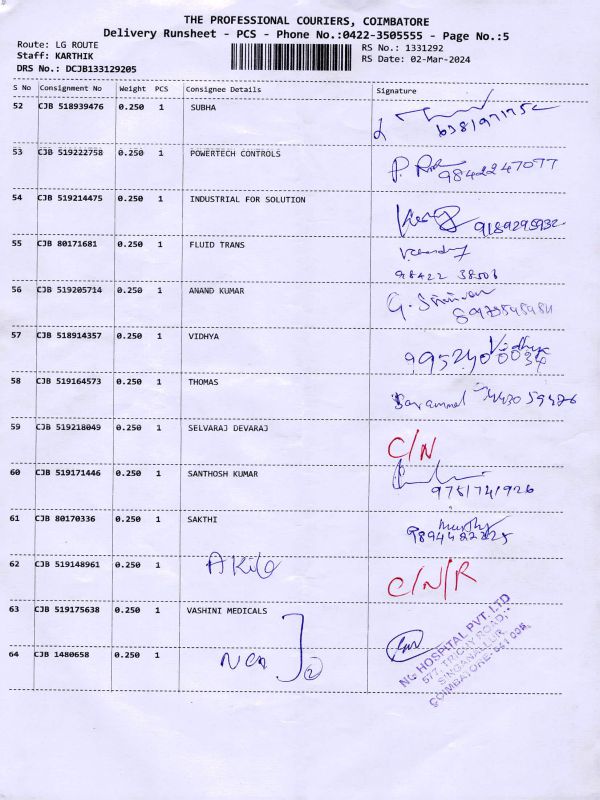 THE PROFESSIONAL COURIERS, COIMBATORE
Delivery Runsheet - PCS - Phone No.:0422-3505555 - Page No.:5
Route: LG ROUTE RS No.: 1331292
Staff: KARTHIK RS Date: 02-Mar-2024
DRS No.: DCJB133129205
S No Consignment No Weight PCS Consignee Details Signature
52 CJB 518939476 0.250 1 SUBHA
53 CJB 519222758 0.250 1 POWERTECH CONTROLS
9842247077
54 CJB 519214475 0.250 1 INDUSTRIAL FOR SOLUTION
9189295932
55 CJB 80171681 0.250 1 FLUID TRANS
98422 38506
56 CJB 519205714 0.250 1 ANAND KUMAR
57 CJB 518914357 0.250 1 VIDHYA Vidhya
9952400034
58 CJB 519164573 0.250 1 THOMAS
59 CJB 519218049 0.250 1 SELVARAJ DEVARAJ C/N
60 CJB 519171446 0.250 1 SANTHOSH KUMAR
9751741926
61 CJB 80170336 0.250 1 SAKTHI Murthy
9894422225
62 CJB 519148961 0.250 1 C/N/R
63 CJB 519175638 0.250 1 VASHINI MEDICALS
64 CJB 1480658 0.250 1 2
NG HOSPITAL PVT. LTD
577, TRICHY ROAD,
SINGANALLUR
COIMBATORE-641 005.